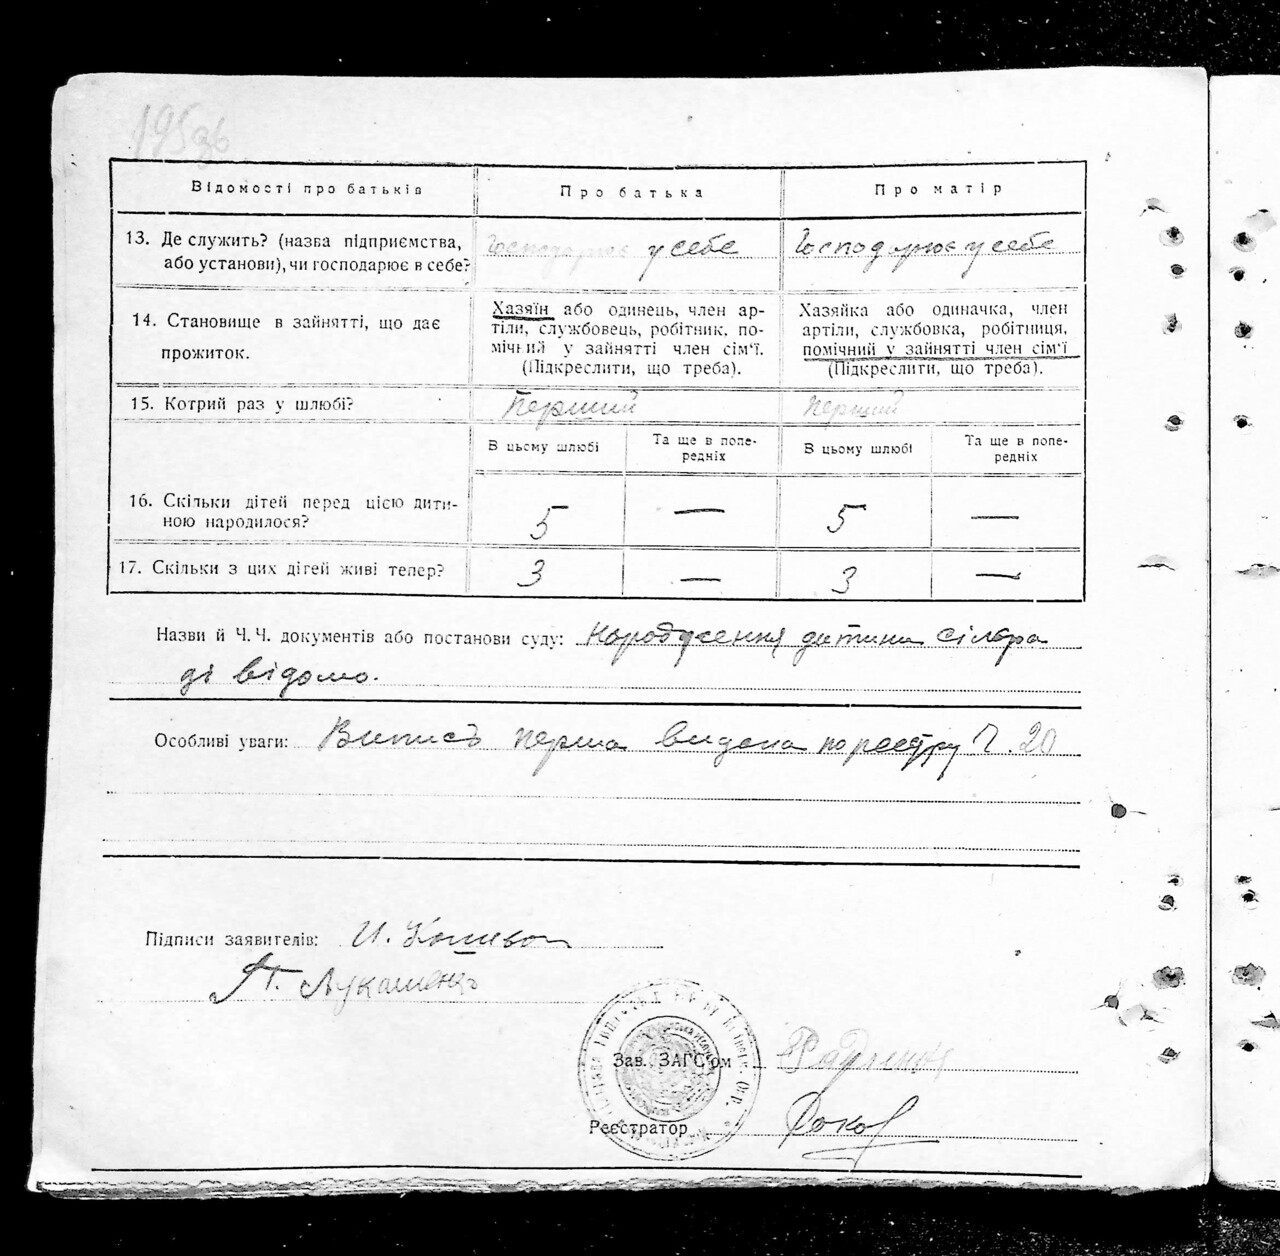 195зв
Відомості про батьків
Про батька
Про матір
13. Де служить? (назва підприємства,
або установи), чи господарює в себе?
Господарює у себе
Господарює у себе
14. Становище в зайнятті, що дає
прожиток.
Хазяїн або одинець, член ар-
тіли, службовець, робітник, по-
мічний у зайнятті член сім'ї.
(Підкреслити, що треба).
Хазяйка або одиначка, член
артіли, службовка, робітниця,
помічний у зайнятті член сім'ї
(Підкреслити, що треба).
15. Котрий раз у шлюбі?
Перший
Перший
В цьому шлюбі
Та ще в попе-
редніх
В цьому шлюбі
Та ще в попе-
редніх
16. Скільки дітей перед цією дити-
ною народилося?
5 — 5 —
17. Скільки з цих дітей живі тепер?
3 — 3 —
Назви й Ч. Ч. документів або постанови суду: Народження дитини сільра
ді відомо.
Особливі уваги: Випись перша видана по реєстру Ч. 20
Підписи заявителів: И. Кошевой
П. Лукашенко
Зав. ЗАГС'ом
Реєстратор